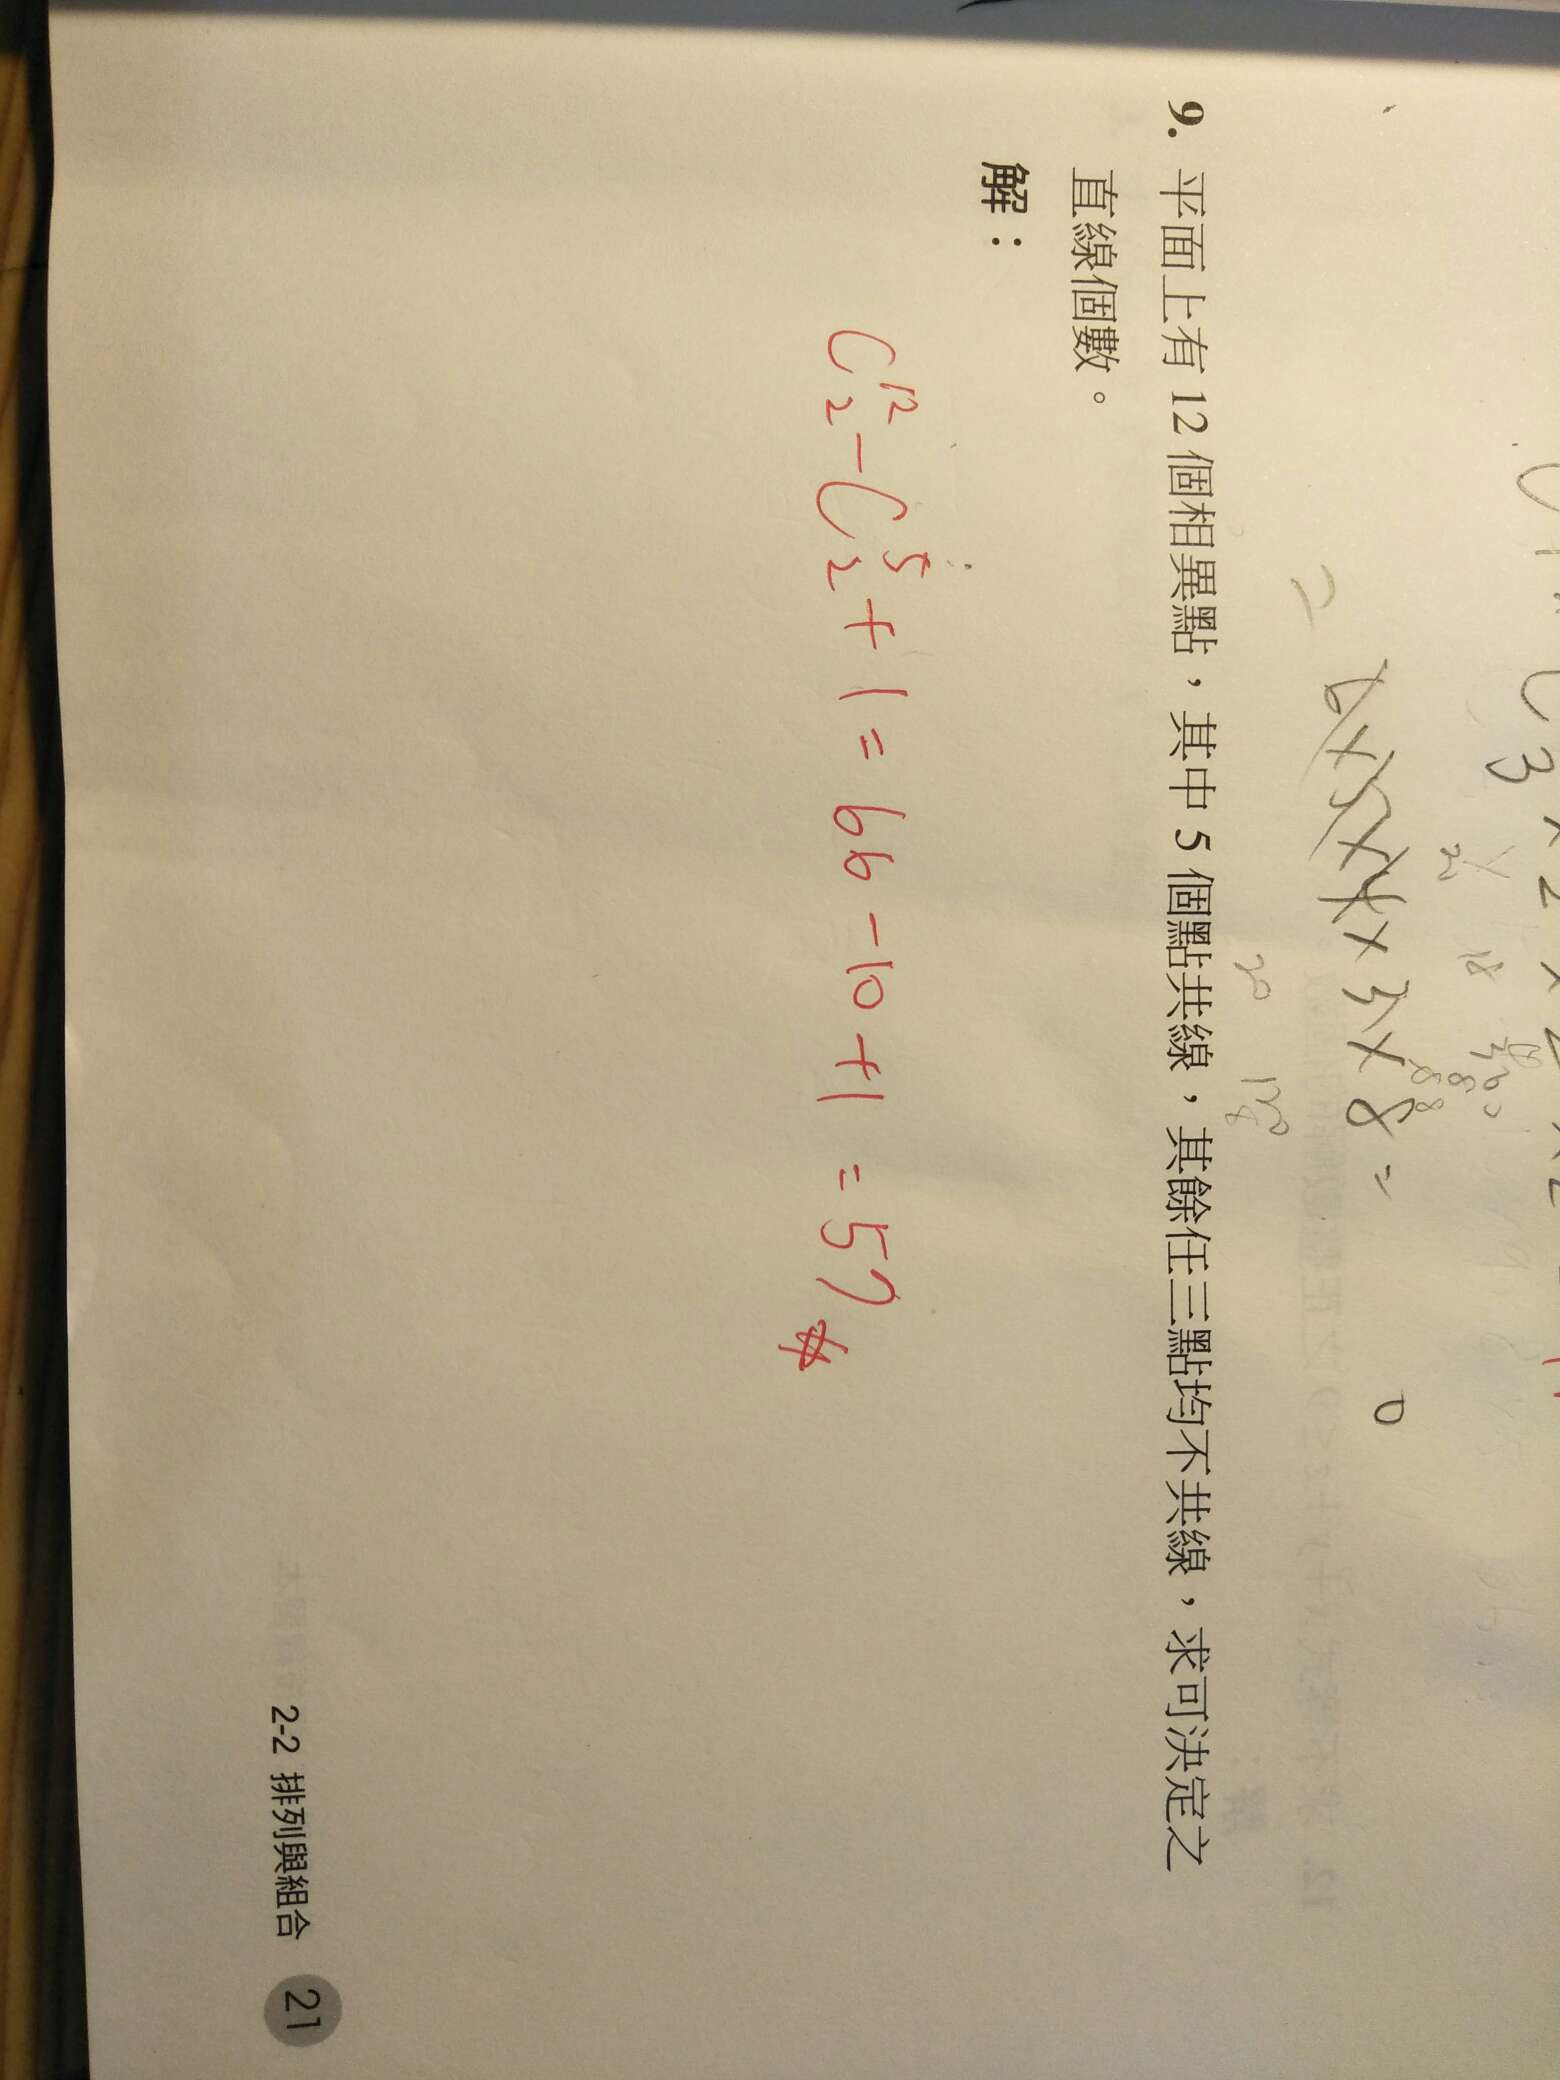 6×5×4×3×8=
20 120
9. 平面上有 12 個相異點，其中 5 個點共線，其餘任三點均不共線，求可決定之
直線個數。
解：
C¹²₂-C⁵₂+1=66-10+1=57
2-2 排列與組合 21